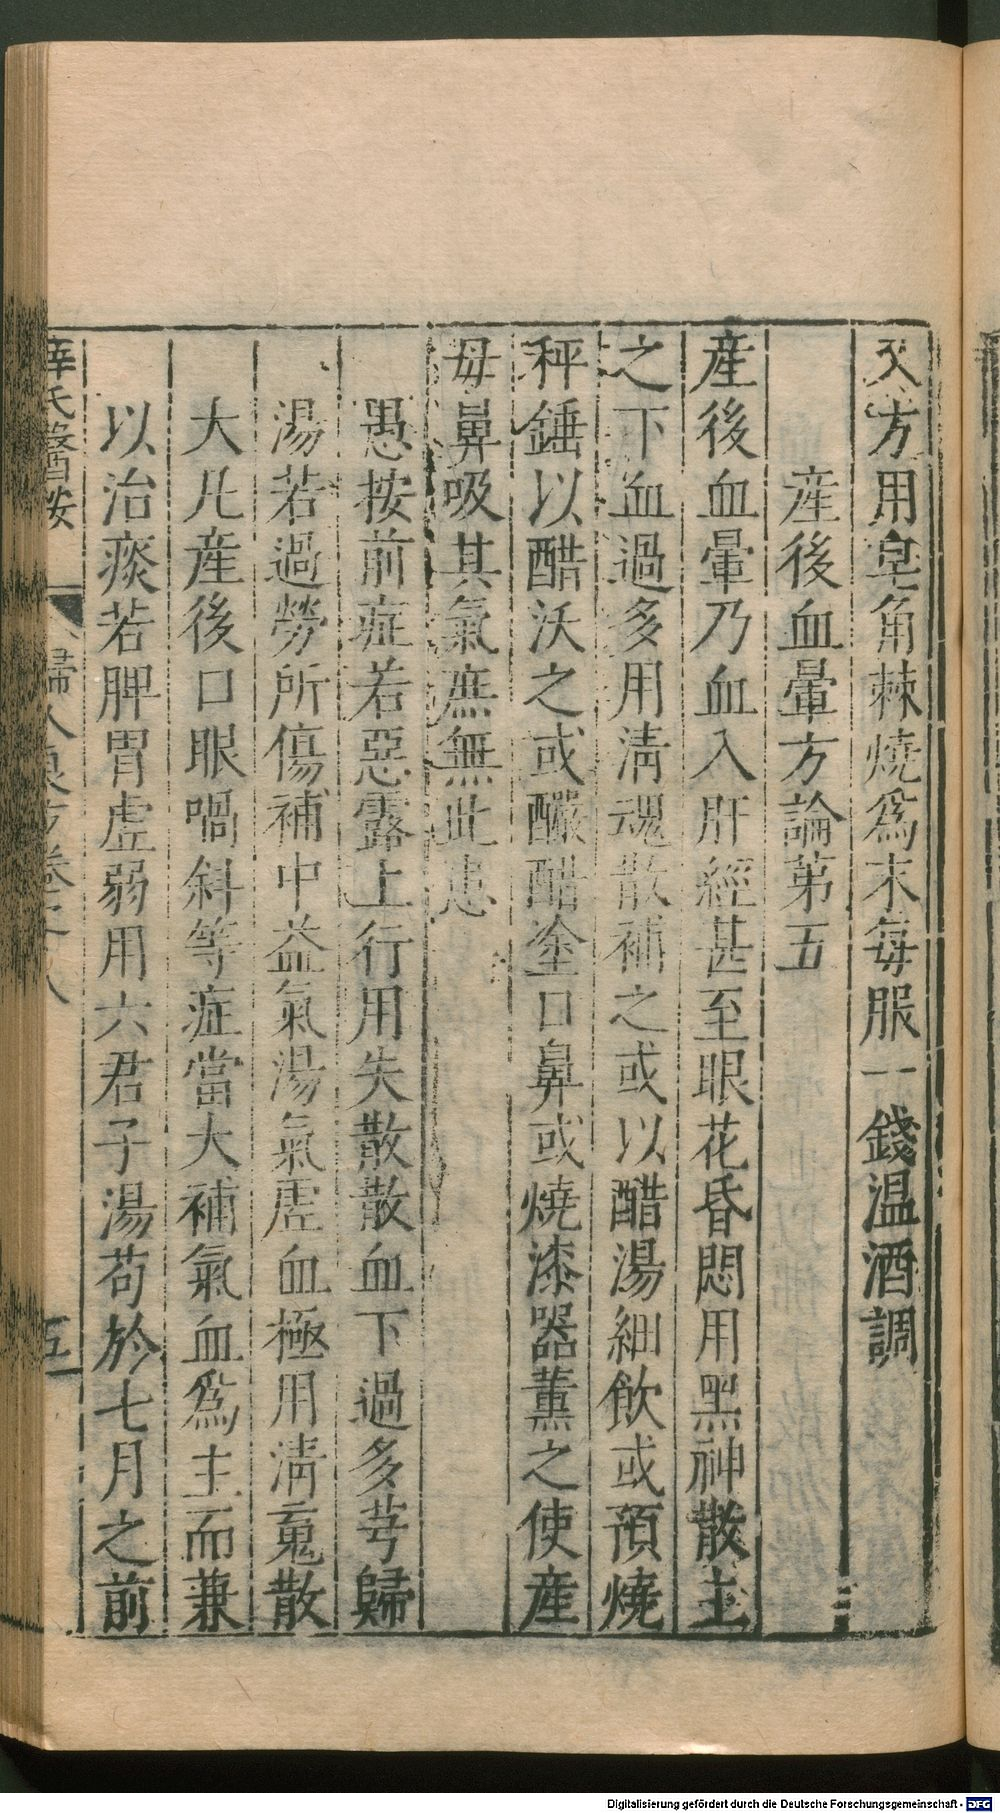 又方用皂角棘燒為末每服一錢温酒調
産後血暈方論第五
産後血暈乃血入肝經甚至眼花昏悶用黑神散主
之下血過多用清魂散補之或以醋湯細飲或預燒
秤錘以醋沃之或釅醋塗口鼻或燒漆器薰之使産
母鼻吸其氣庶無此患
愚按前症若惡露上行用失散散血下過多芎歸
湯若過勞所傷補中益氣湯氣虚血極用清䰟散
大凡産後口眼喎斜等症當大補氣血爲主而兼
以治痰若脾胃虚弱用六君子湯苟於七月之前
薛氏醫按
婦人良方卷之八
五
Digitalisierung gefördert durch die Deutsche Forschungsgemeinschaft - DFG